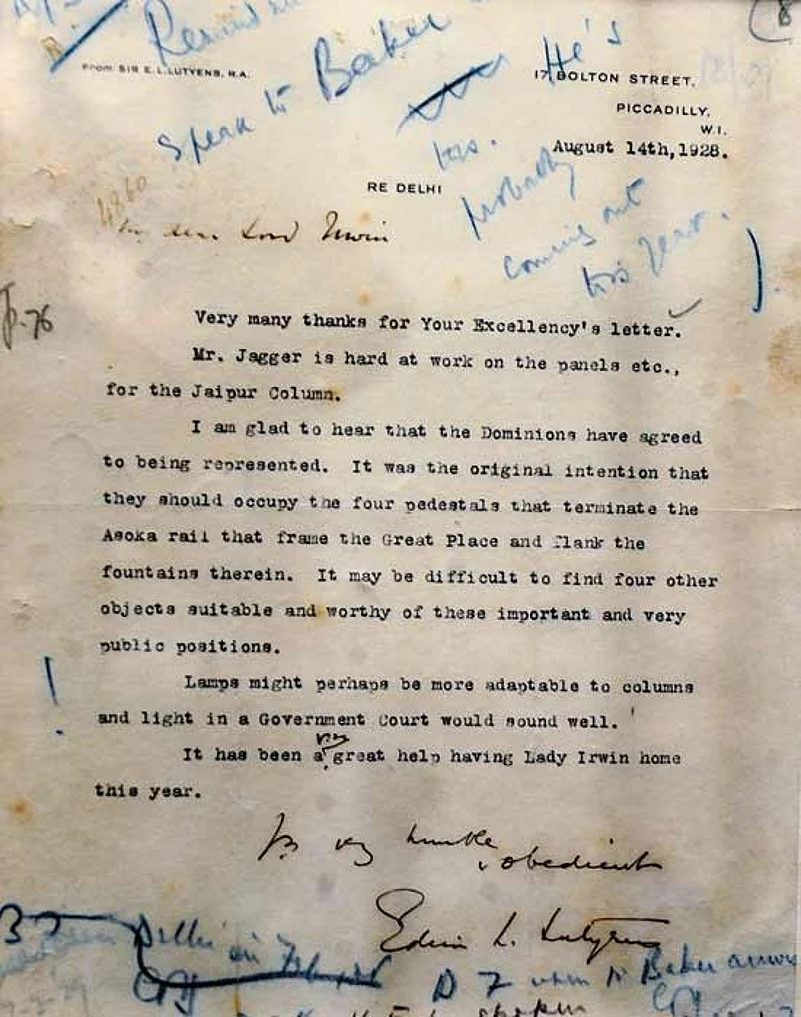 Speak to Baker
He's
From SIR E.L.LUTYENS, R.A.
17, BOLTON STREET,
PICCADILLY,
W.I.
August 14th,1928.
this.
probably
coming out
this year.
RE DELHI
4860
My dear Lord Irwin
p.76
Very many thanks for Your Excellency's letter.
Mr. Jagger is hard at work on the panels etc.,
for the Jaipur Column.
I am glad to hear that the Dominions have agreed
to being represented. It was the original intention that
they should occupy the four pedestals that terminate the
Asoka rail that frame the Great Place and flank the
fountains therein. It may be difficult to find four other
objects suitable and worthy of these important and very
public positions.
!
Lamps might perhaps be more adaptable to columns
and light in a Government Court would sound well.
very
It has been a great help having Lady Irwin home
this year.
humble
obedient
Edwin L. Lutyens
Delhi in
when Mr Baker